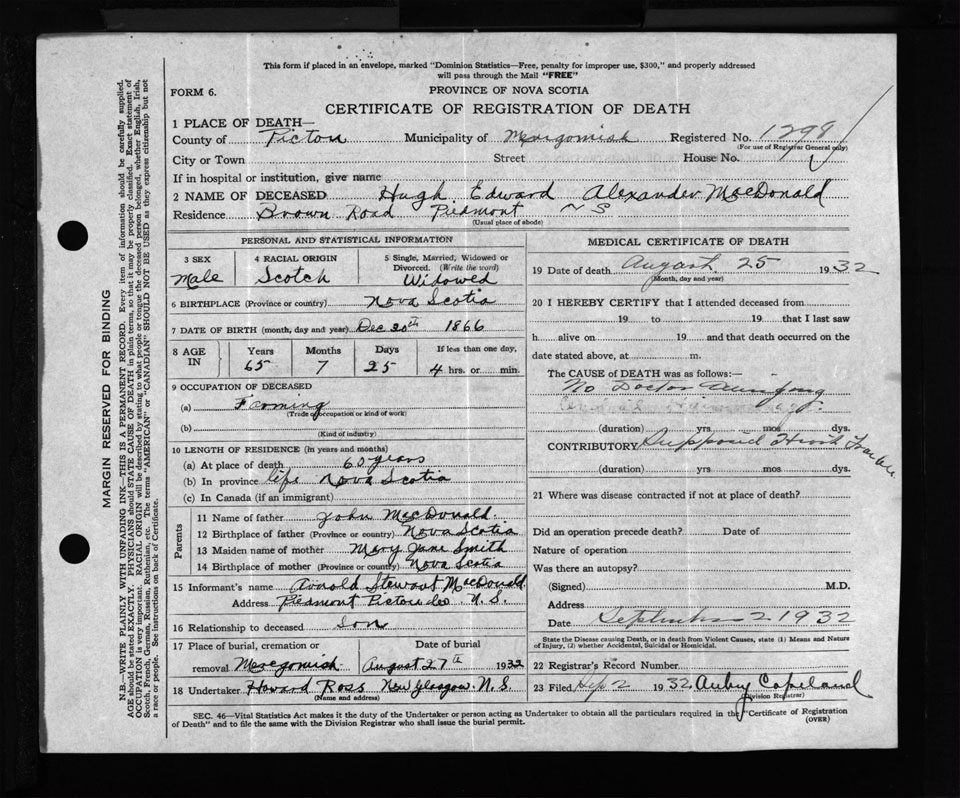 This form if placed in an envelope, marked "Dominion Statistics—Free, penalty for improper use, $300," and properly addressed
will pass through the Mail "FREE"
FORM 6.
PROVINCE OF NOVA SCOTIA
CERTIFICATE OF REGISTRATION OF DEATH
1 PLACE OF DEATH—
County of Pictou Municipality of Merigomish Registered No. 1298
(For use of Registrar General only)
City or Town Street House No.
If in hospital or institution, give name
2 NAME OF DECEASED Hugh Edward Alexander MacDonald
Residence Brown Road Piedmont N S
(Usual place of abode)
PERSONAL AND STATISTICAL INFORMATION
3 SEX 4 RACIAL ORIGIN 5 Single, Married, Widowed or
Divorced. (Write the word)
Male Scotch Widowed
6 BIRTHPLACE (Province or country) Nova Scotia
7 DATE OF BIRTH (month, day and year) Dec 20th 1866
8 AGE IN Years Months Days If less than one day,
65 7 25 4 hrs. or min.
9 OCCUPATION OF DECEASED
(a) Farming
(Trade, occupation or kind of work)
(b)
(Kind of industry)
10 LENGTH OF RESIDENCE (in years and months)
(a) At place of death 60 years
(b) In province life Nova Scotia
(c) In Canada (if an immigrant)
Parents
11 Name of father John MacDonald
12 Birthplace of father (Province or country) Nova Scotia
13 Maiden name of mother Mary Jane Smith
14 Birthplace of mother (Province or country) Nova Scotia
15 Informant's name Arnold Stewart MacDonald
Address Piedmont Pictou Co N.S.
16 Relationship to deceased Son
17 Place of burial, cremation or Date of burial
removal Merigomish August 27th 1932
18 Undertaker Howard Ross New Glasgow N.S
(Name and address)
MEDICAL CERTIFICATE OF DEATH
19 Date of death August 25 1932
(Month, day and year)
20 I HEREBY CERTIFY that I attended deceased from
19 to 19 that I last saw
h alive on 19 and that death occurred on the
date stated above, at m.
The CAUSE of DEATH was as follows:—
No Doctor
(duration) yrs. mos. dys.
CONTRIBUTORY Supposed Heart Trouble
(duration) yrs. mos. dys.
21 Where was disease contracted if not at place of death?
Did an operation precede death? Date of
Nature of operation
Was there an autopsy?
(Signed) M.D.
Address
Date September 2 1932
State the Disease causing Death, or in death from Violent Causes, state (1) Means and Nature
of Injury, (2) whether Accidental, Suicidal or Homicidal.
22 Registrar's Record Number
23 Filed Sep 2 1932 Auby Copeland
Division Registrar
SEC. 46—Vital Statistics Act makes it the duty of the Undertaker or person acting as Undertaker to obtain all the particulars required in the "Certificate of Registration
of Death" and to file the same with the Division Registrar who shall issue the burial permit. (OVER)
MARGIN RESERVED FOR BINDING
N.B.—WRITE PLAINLY WITH UNFADING INK—THIS IS A PERMANENT RECORD. Every item of information should be carefully supplied.
AGE should be stated EXACTLY. PHYSICIANS should STATE CAUSE OF DEATH in plain terms, so that it may be properly classified. Exact statement of
OCCUPATION is very important. RACIAL ORIGIN will be described by stating to what people or tongue the deceased person belonged, whether English, Irish,
Scotch, French, German, Russian, Ruthenian, etc. The terms "AMERICAN" or "CANADIAN" SHOULD NOT BE USED as they express citizenship but not
a race or people. See instructions on back of Certificate.